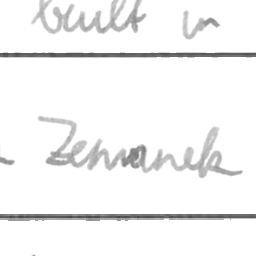 built in
Zemanek